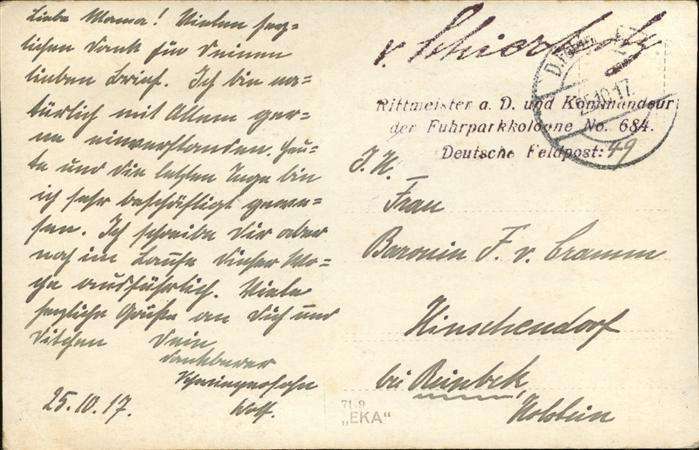 Liebe Mama! Vielen herz-
lichen Dank für Deinen
lieben Brief. Ich bin na-
türlich mit Allem ger-
ne einverstanden. Heu-
te und die letzten Tage bin
ich sehr beschäftigt gewe-
sen. Ich schreibe Dir aber
noch im Laufe dieser Wo-
che ausführlich. Viele
herzliche Grüße an Dich und
Dein
dankbarer
Schwiegersohn
25.10.17.
v.
25.10.17.
Rittmeister a. D. und Kommandeur
der Fuhrparkkolonne No. 684.
Deutsche Feldpost: 49
Frau
Baronin F. v. Cramm
Hinschendorf
bei Reinbek,
Holstein
71-9
„EKA"